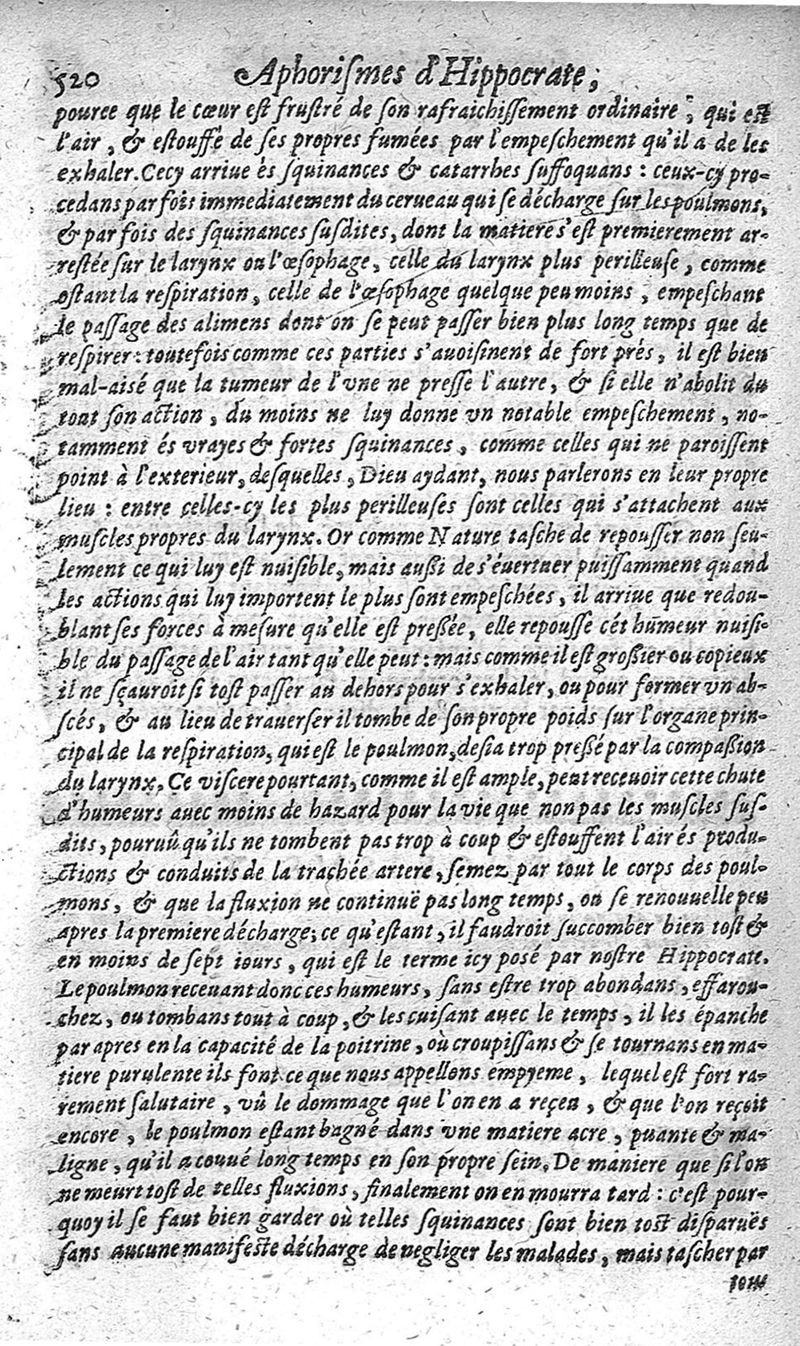 520 Aphoriſmes d'Hippocrate,
pource que le cœur eſt fruſtré de ſon rafraichiſſement ordinaire, qui eſt
l'air, & eſtouffé de ſes propres fumées par l'empeſchement qu'il a de les
exhaler. Cecy arriue és ſquinances & catarrhes ſuffoquans : ceux-cy pro-
cedans par fois immediatement du cerueau qui ſe décharge ſur les poulmons,
& par fois des ſquinances ſuſdites, dont la matiere s'eſt premierement ar-
reſtée ſur le larynx ou l'œſophage, celle du larynx plus perilleuſe, comme
oſtant la reſpiration, celle de l'œſophage quelque peu moins, empeſchant
le paſſage des alimens dont on ſe peut paſſer bien plus long temps que de
reſpirer : toutefois comme ces parties s'auoiſinent de fort prés, il eſt bien
mal-aisé que la tumeur de l'vne ne preſſe l'autre, & ſi elle n'abolit du
tout ſon action, du moins ne luy donne vn notable empeſchement, no-
tamment és vrayes & fortes ſquinances, comme celles qui ne paroiſſent
point à l'exterieur, deſquelles, Dieu aydant, nous parlerons en leur propre
lieu : entre celles-cy les plus perilleuſes ſont celles qui s'attachent aux
muſcles propres du larynx. Or comme Nature taſche de repouſſer non ſeu-
lement ce qui luy eſt nuiſible, mais außi de s'éuertuer puiſſamment quand
les actions qui luy importent le plus ſont empeſchées, il arriue que redou-
blant ſes forces à meſure qu'elle eſt preßée, elle repouſſe cét humeur nuiſi-
ble du paſſage de l'air tant qu'elle peut : mais comme il eſt großier ou copieux
il ne ſçauroit ſi toſt paſſer au dehors pour s'exhaler, ou pour former vn ab-
ſcés, & au lieu de trauerſer il tombe de ſon propre poids ſur l'organe prin-
cipal de la reſpiration, qui eſt le poulmon, deſia trop preßé par la compaßion
du larynx. Ce viſcere pourtant, comme il eſt ample, peut receuoir cette chute
d'humeurs auec moins de hazard pour la vie que non pas les muſcles ſuſ-
dits, pouruû qu'ils ne tombent pas trop à coup & eſtouffent l'air és produ-
ctions & conduits de la trachée artere, ſemez par tout le corps des poul-
mons, & que la fluxion ne continuë pas long temps, ou ſe renouuelle peu
apres la premiere décharge; ce qu'eſtant, il faudroit ſuccomber bien toſt &
en moins de ſept iours, qui eſt le terme icy posé par noſtre Hippocrate.
Le poulmon receuant donc ces humeurs, ſans eſtre trop abondans, effarou-
chez, ou tombans tout à coup, & les cuiſant auec le temps, il les épanche
par apres en la capacité de la poitrine, où croupiſſans & ſe tournans en ma-
tiere purulente ils font ce que nous appellons empyeme, lequel eſt fort ra-
rement ſalutaire, vû le dommage que l'on en a reçeu, & que l'on reçoit
encore, le poulmon eſtant bagné dans vne matiere acre, puante & ma-
ligne, qu'il a couué long temps en ſon propre ſein. De maniere que ſi l'on
ne meurt toſt de telles fluxions, finalement on en mourra tard : c'eſt pour-
quoy il ſe faut bien garder où telles ſquinances ſont bien toſt diſparuës
ſans aucune manifeſte décharge de negliger les malades, mais taſcher par